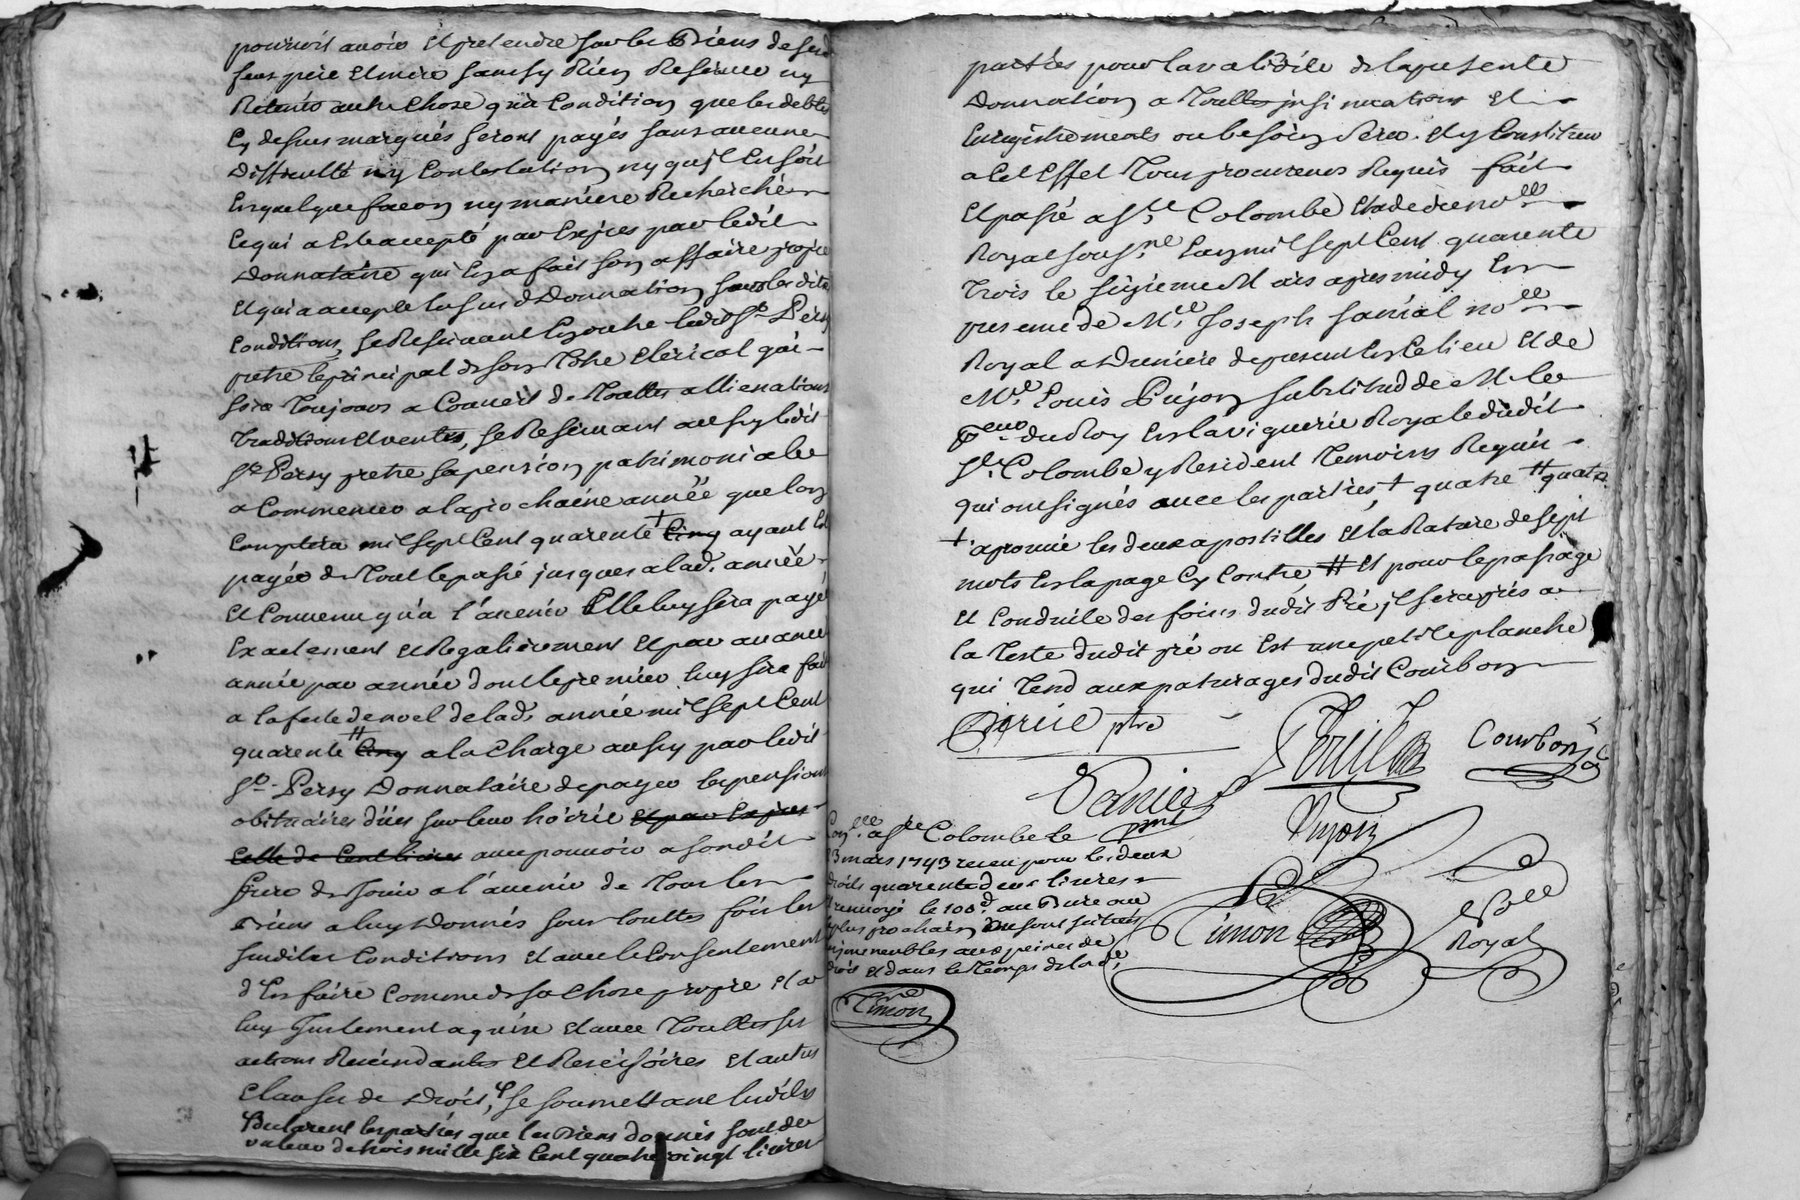 pourroit avoir et pretendre sur les Biens de feus
feus père et mère sans sy Rien Reserver ny
Retenir autre chose qu'a Condition que les debtes
Cy dessus marqués seront payés sans aucune
difficulté ny Contestation ny qu'il En soit
En quelque facon ny maniere Recherché
Ce qui a Esté accepté par Expres par ledit
Donnataire qui En a fait son affaire propre
et qui a accepté la susd Donnation sous les dites
Conditions, se Reservant En outre ledit Sr Persy
pretre le principal de son titre Clérical qui
sera toujours a Couvert de touttes allienations
traditions et ventes, se Reservant aussy ledit
Sr Persy pretre sa pension patrimonialle
a Commencer a la prochaine année que lon
Comptera mil sept Cent quarente + Cinq ayant Esté
payée de tout le passé jusques a lad. année
et Convenu qu'a l'avenir Elle luy sera payé
Exactement et Regulierement et par avance
année par année dont le premier luy sera fait
a la feste de noel de lad. année mil sept Cent
quarente # Cinq a la Charge aussy par ledit
Sr Persy Donnataire de payer les pensions
obituaires düës sur leur hoirie et par Expres
Celle de Cent livres avec pouvoir a sondit
frere de Jouir a l'avenir de tous les
Biens a luy Donnés sous touttes fois les
susdites Conditions et avec le Consentement
d'En faire Comme de sa chose propre et a
luy Justement aquise et avec touttes ses
actions Rescindantes et Rescisoires et autres
Clauses de Droit, se soumettant lesdites
Declarent les parties que les Biens donnés sont de
valleur de trois mille six Cent quatre vingt livres
parties pour la validité de la presente
Donnation a touttes insinuations et
Enregistrements ou besoin sera et y Constituer
a Cet Effet tous procureurs Requis fait
et passé a Ste Colombe Etude de no.re
Royal sousné Lan mil sept Cent quarente
trois le sixieme Mars apres midy En
presence de Me Joseph samial no.re
Royal a de present En Ce lieu et de
Me Louis Pujon substitud de M. le
procur du Roy En la viguerie Royale dudit
Ste Colombe y Resident temoins Requis
qui ont signés avec les parties, + quatre # quatre
+ aprouvé les deux apostilles et la Rature de sept
mots En la page Cy Contre # et pour le passage
et Conduite des foins dudit Pré il sera pris a
la teste dudit pré ou Est une petite planche
qui tend aux paturages dudit Courbon
ptre
Courbon
Pujon
Con.llé a Ste Colombe le
13 mars 1743 receu pour les deux
droits quarente deux livres
renvoyé le 100e. au Bureau
plus prochain ou sont scitués
immeubles aux peines de
droit et dans le temps de lad.
Timon
Timon
Royal